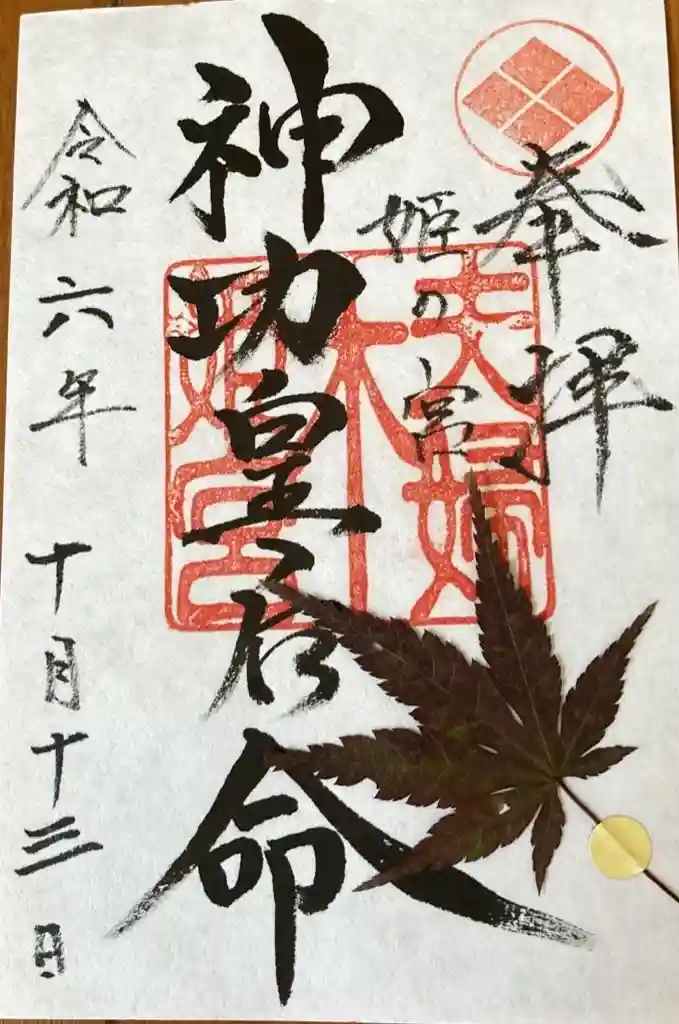 奉拝
姫の宮
夫婦
木
姫宮
神功皇后命
令和六年十月十三日